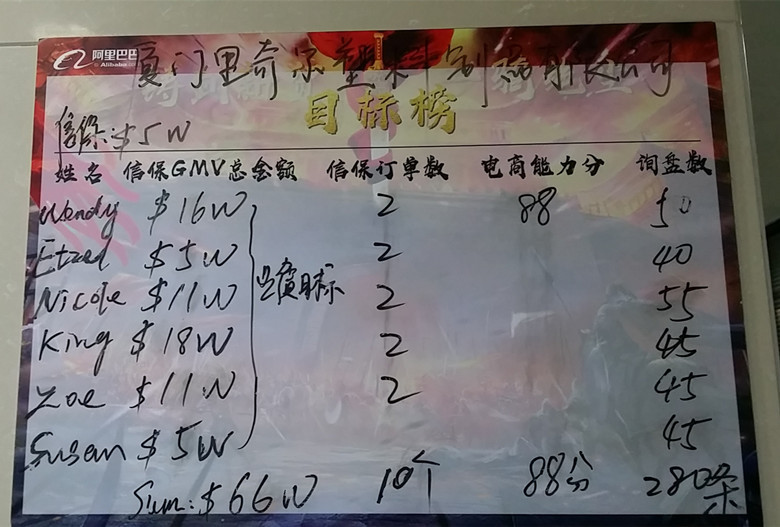 阿里巴巴
Alibaba
厦门里奇尔塑料制品有限公司
目标榜
信保:$5W
姓名 信保GMV总金额 信保订单数 电商能力分 询盘数
Wendy $16W 2 88 50
Etzel $5W 2 40
Nicole $11W 2 55
出货目标
King $18W 2 45
Zoe $11W 2 45
Susan $5W 45
Sum:$66W 10个 88分 280条